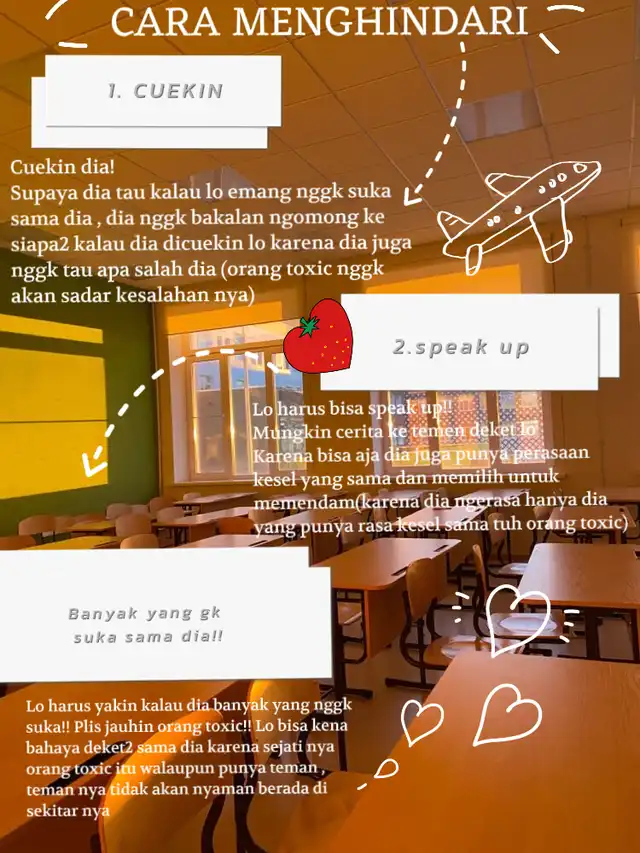 CARA MENGHINDARI
1. CUEKIN
Cuekin dia!
Supaya dia tau kalau lo emang nggk suka
sama dia , dia nggk bakalan ngomong ke
siapa2 kalau dia dicuekin lo karena dia juga
nggk tau apa salah dia (orang toxic nggk
akan sadar kesalahan nya)
2.speak up
Lo harus bisa speak up!!
Mungkin cerita ke temen deket lo
Karena bisa aja dia juga punya perasaan
kesel yang sama dan memilih untuk
memendam(karena dia ngerasa hanya dia
yang punya rasa kesel sama tuh orang toxic)
Banyak yang gk
suka sama dia!!
Lo harus yakin kalau dia banyak yang nggk
suka!! Plis jauhin orang toxic!! Lo bisa kena
bahaya deket2 sama dia karena sejati nya
orang toxic itu walaupun punya teman ,
teman nya tidak akan nyaman berada di
sekitar nya